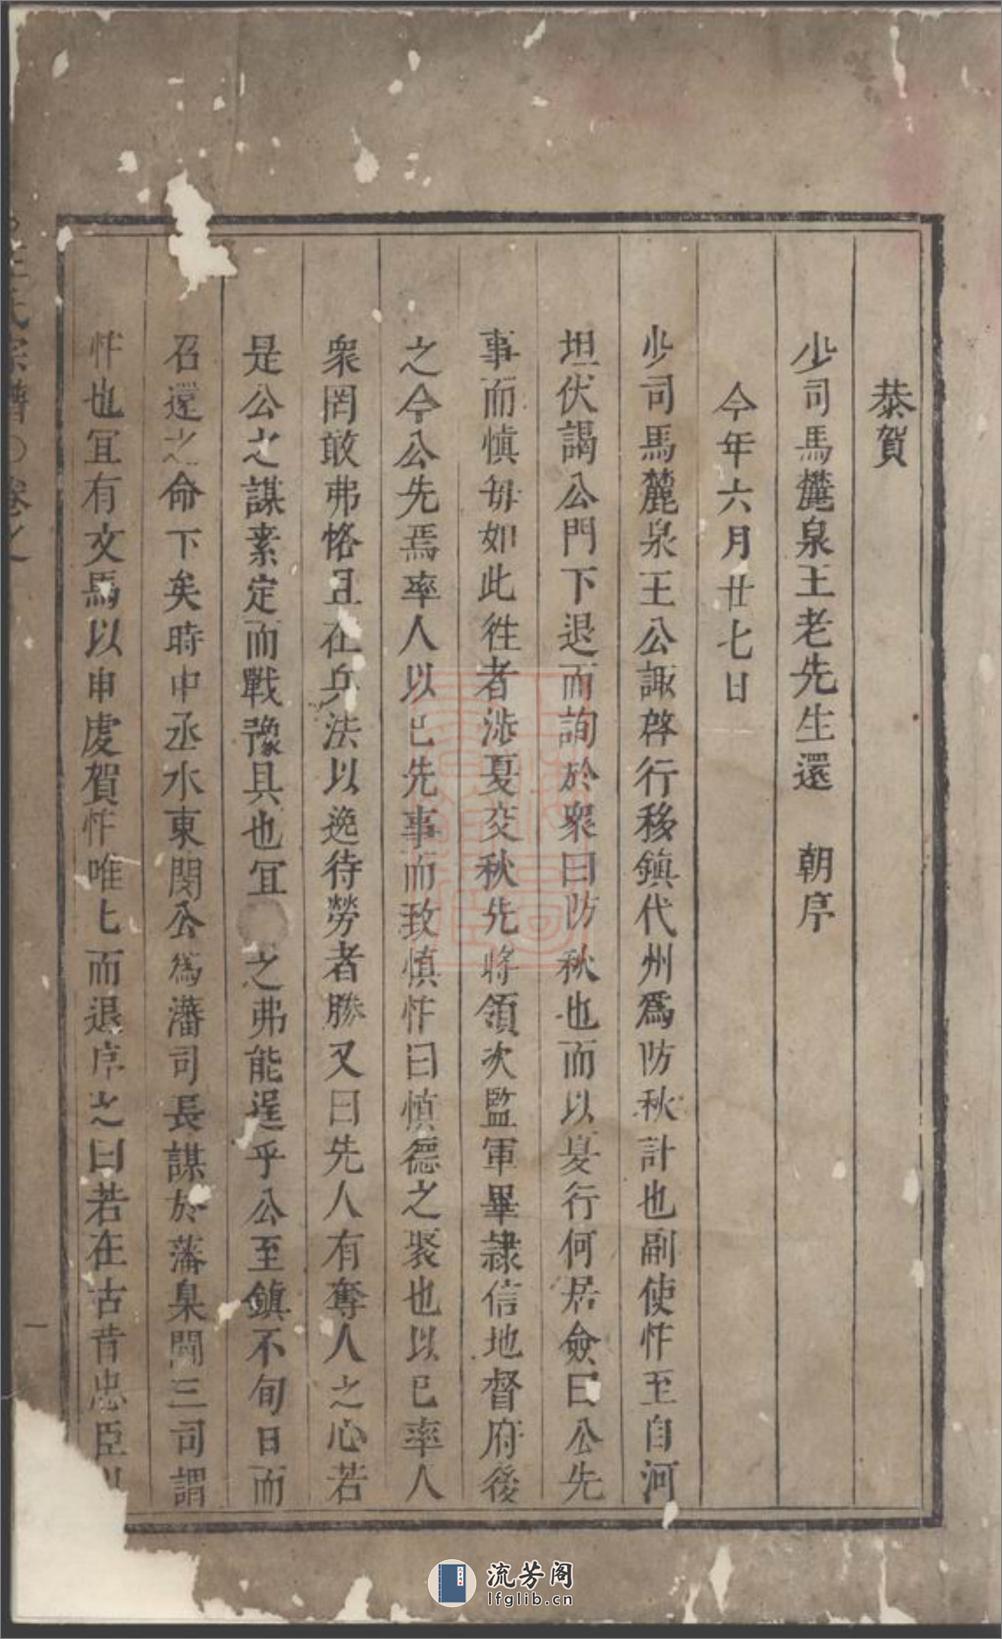 恭賀
少司馬麓泉王老先生還 朝序
今年六月廿七日
少司馬麓泉王公諏啓行移鎮代州爲防秋計也副使怍至自河
坦伏謁公門下退而詢於衆曰防秋也而以夏行何居僉曰公先
事而慎毋如此徃者涉夏交秋先將領次監軍畢隷信地督府後
之今公先焉率人以巳先事而致慎怍曰慎德之聚也以巳率人
衆罔敢弗恪且在兵法以逸待勞者勝又曰先人有奪人之心若
是公之謀素定而戰豫具也宜 之弗能逞乎公至鎮不旬日而
召還之命下矣時中丞水東閔公爲藩司長謀於藩臬閫三司謂
怍也宜有文焉以申慶賀怍唯七而退序之曰若在古昔忠臣
王氏宗譜〇卷之
一
流芳阁
lfglib.cn